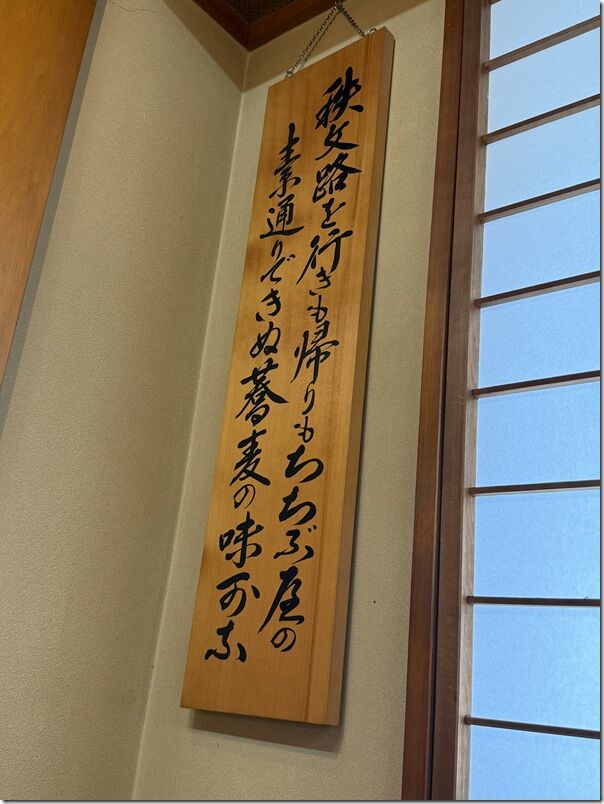 秩父路を行きも帰りもちちぶ屋の
素通りできぬ蕎麦の味可奈